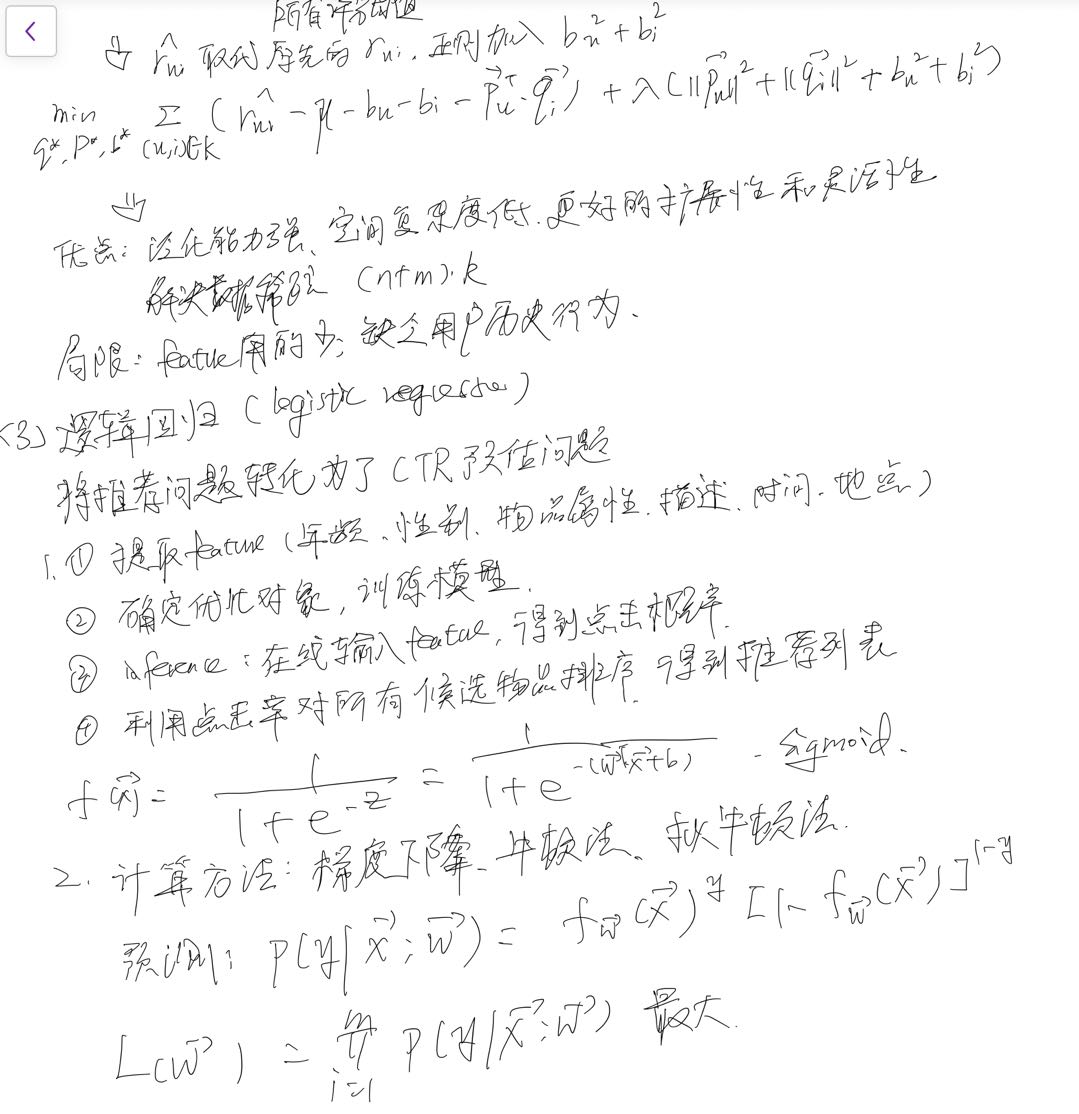 所有评分均值
⇩ r̂ui 取代原先的 rui, 正则加入 bu²+bi²
min q*,p*,b* Σ(u,i)∈K (r̂ui - μ - bu - bi - p⃗uᵀ·q⃗i) + λ(||p⃗u||² + ||q⃗i||² + bu² + bi²)
⇩
优点: 泛化能力强、空间复杂度低、更好的扩展性和灵活性
解决数据稀疏 (n+m)·k
局限: featue用的少; 缺乏用户历史行为.
(3) 逻辑回归 (logistic regression)
将推荐问题转化为了CTR预估问题
1. ① 提取feature (年龄、性别、物品属性、描述、时间、地点)
② 确定优化对象, 训练模型.
③ inference: 在线输入featue, 得到点击概率.
④ 利用点击率对所有候选物品排序. 得到推荐列表
f(x⃗) = 1/(1+e^-z) = 1/(1+e^-(w⃗ᵀx⃗+b)) - sigmoid.
2. 计算方法: 梯度下降、牛顿法、拟牛顿法.
预测: P(y|x⃗;w⃗) = fw⃗(x⃗)^y [1-fw⃗(x⃗)]^1-y
L(w⃗) = ∏(i=1 to m) P(y|x⃗;w⃗) 最大.